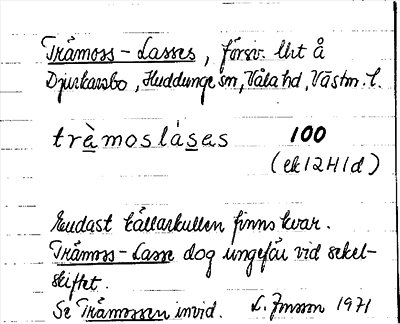 Tråmoss-Lasses, försv. lht å
Djurkarsbo, Huddunge sn, Våla hd, Västm. l.
tràmoslásas 100
(ek 12H1d)
Endast källarkullen finns kvar.
Tråmoss-Lasse dog ungefär vid sekel-
skiftet.
Se Tråmossen invid. L. Jonsson 1971